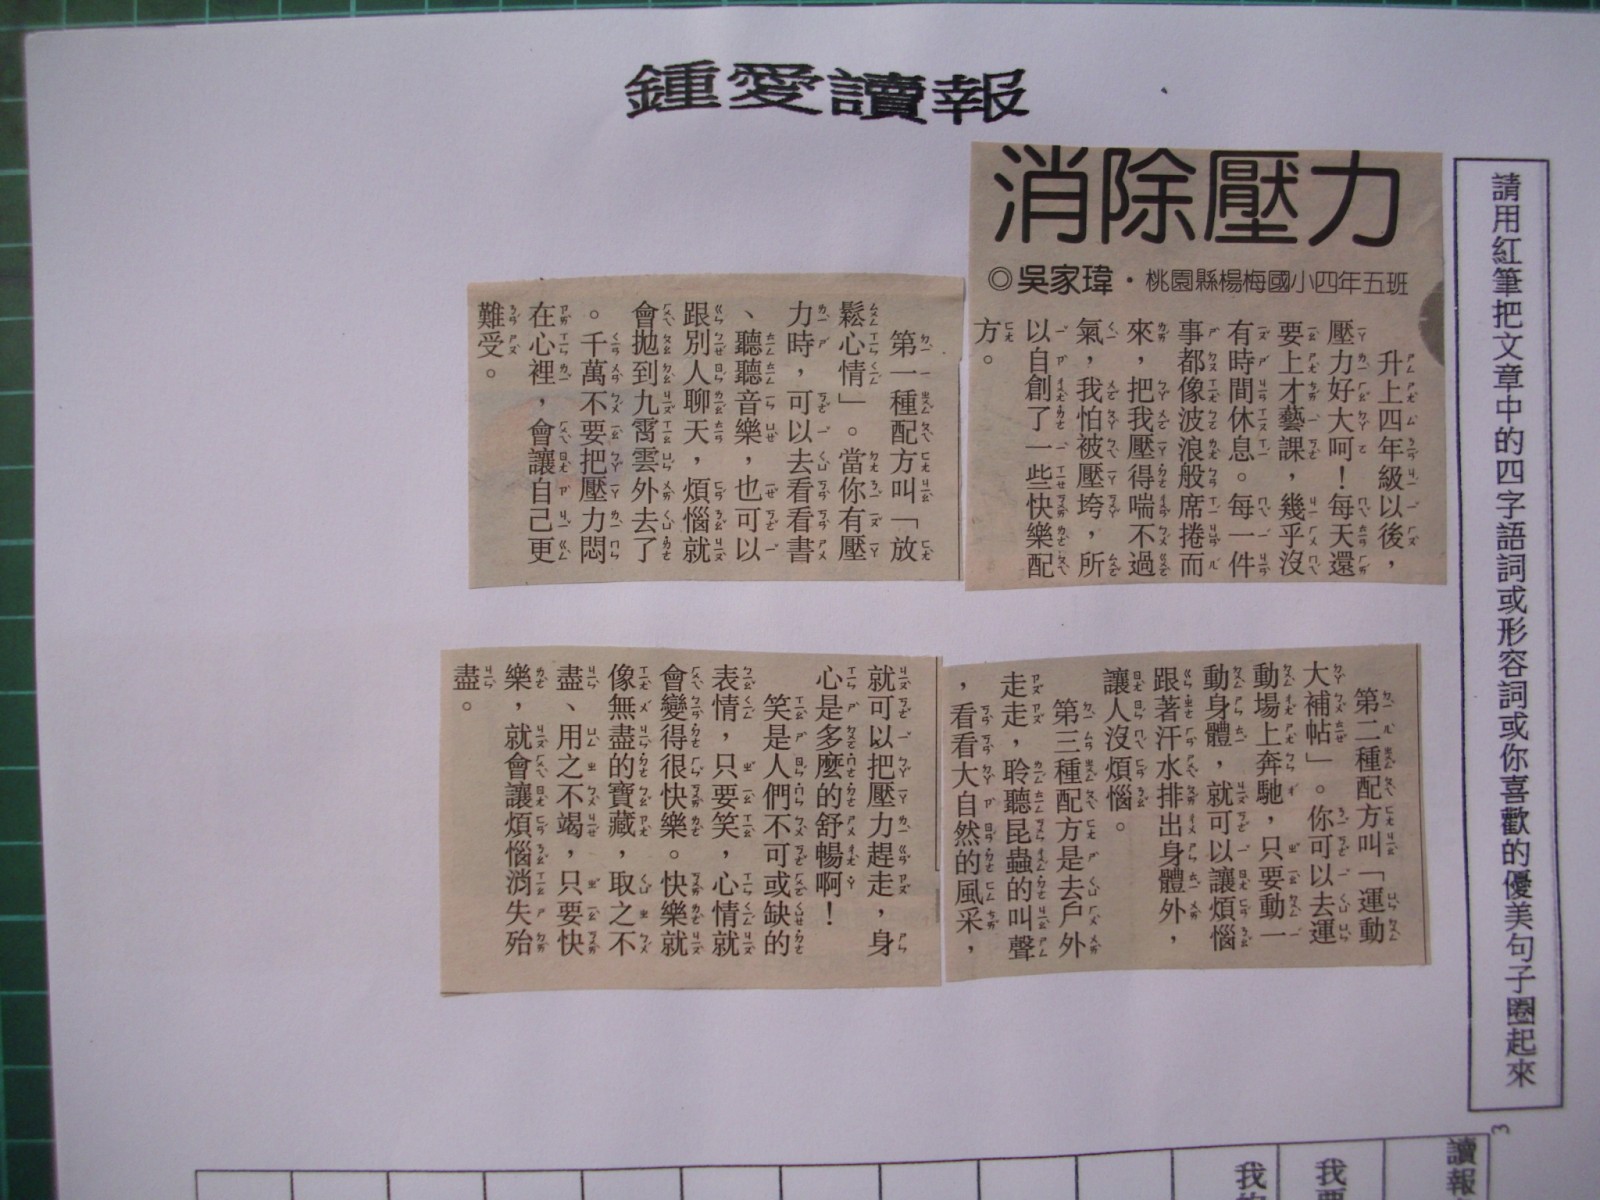 鍾愛讀報
請用紅筆把文章中的四字語詞或形容詞或你喜歡的優美句子圈起來
消除壓力
◎吳家瑋・桃園縣楊梅國小四年五班
升上四年級以後，
壓力好大呵！每天還
要上才藝課，幾乎沒
有時間休息。每一件
事都像波浪般席捲而
來，把我壓得喘不過
氣，我怕被壓垮，所
以自創了一些快樂配
方。
第一種配方叫「放
鬆心情」。當你有壓
力時，可以去看看書
、聽聽音樂，也可以
跟別人聊天，煩惱就
會拋到九霄雲外去了
。千萬不要把壓力悶
在心裡，會讓自己更
難受。
第二種配方叫「運動
大補帖」。你可以去運
動場上奔馳，只要動一
動身體，就可以讓煩惱
跟著汗水排出身體外，
讓人沒煩惱。
第三種配方是去戶外
走走，聆聽昆蟲的叫聲
，看看大自然的風采，
就可以把壓力趕走，身
心是多麼的舒暢啊！
笑是人們不可或缺的
表情，只要笑，心情就
會變得很快樂。快樂就
像無盡的寶藏，取之不
盡、用之不竭，只要快
樂，就會讓煩惱消失殆
盡。
3
讀報
我要
我的